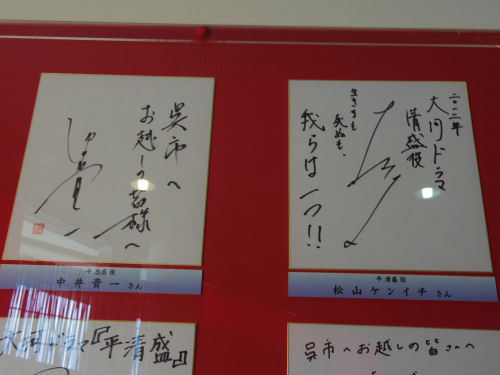 呉市へ
お越しの皆様へ
平忠盛役
中井貴一さん
二〇一二年
大河ドラマ
清盛役
生きるも
死ぬも、
我らは一つ!!
平清盛役
松山ケンイチさん
大河ドラマ『平清盛』
呉市へお越しの皆さんへ